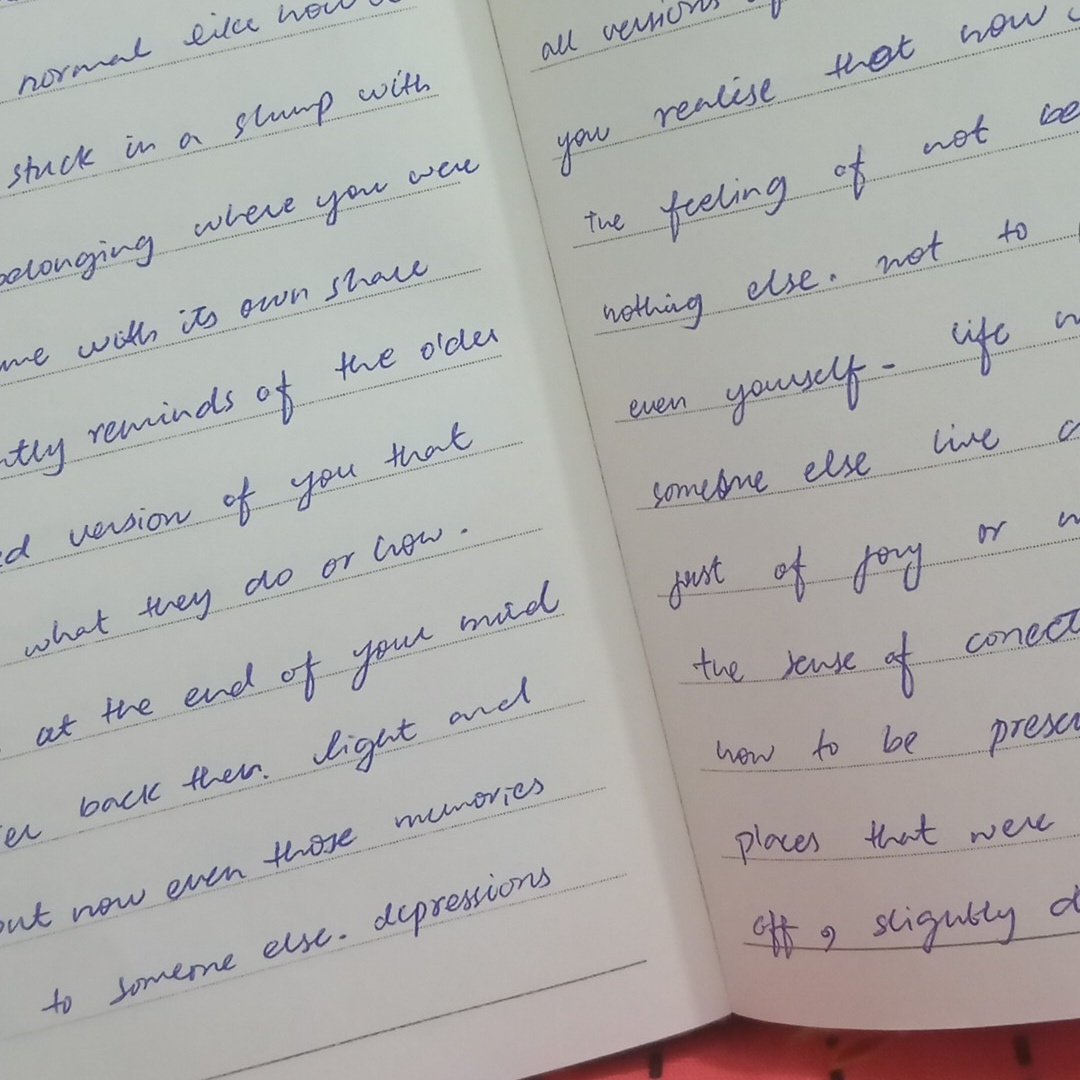 normal like how
stuck in a slump with
belonging where you were
with its own share
reminds of the older
version of you that
what they do or how.
at the end of your mind
back then. light and
but now even those memories
to someone else. depressions
all versions
you realise that now
the feeling of not
nothing else. not to
even yourself - life
someone else live
just of joy or
the sense of
how to be
places that were
off, slightly